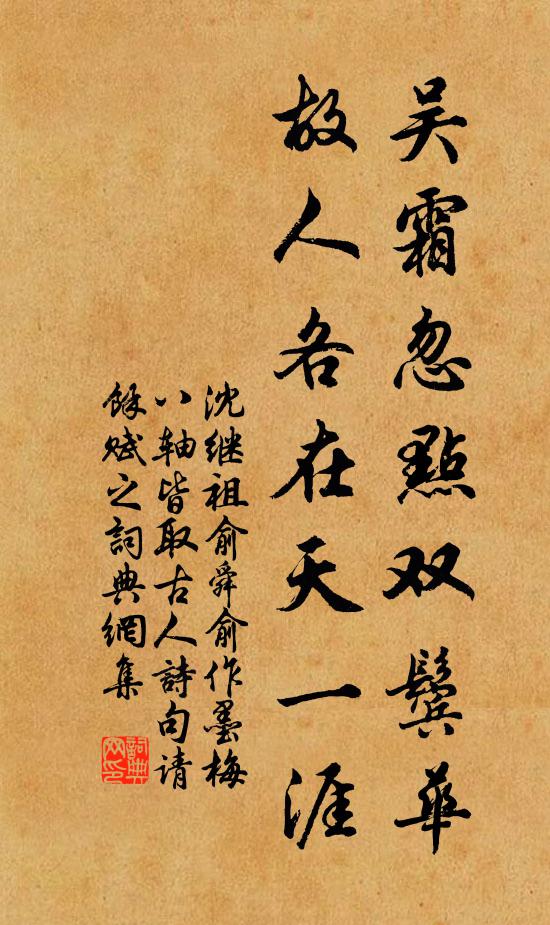 吴霜忽點双鬓華
故人各在天一涯
沈继祖俞舜俞作墨梅
八轴皆取古人詩句请
餘赋之詞典網集
詞典网印